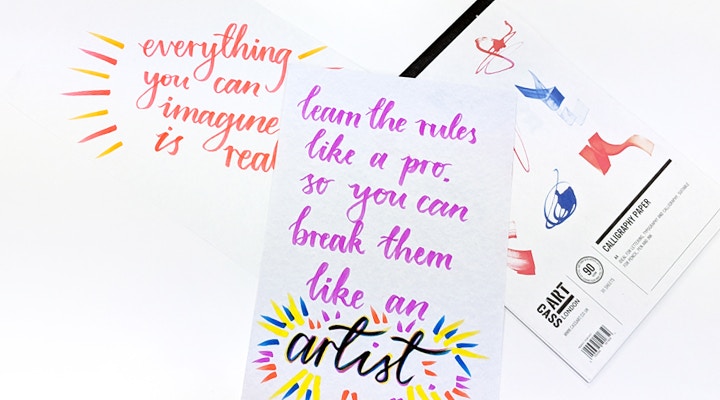 everything
you can
imagine
is real
learn the rules
like a pro.
so you can
break them
like an
artist
CALLIGRAPHY PAPER
A4
90
CASS
ART
LONDON
WWW.CASSART.CO.UK